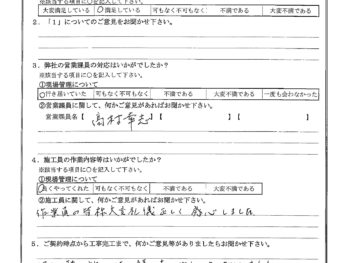 ※該当する項目に○を記入して下さい。
大変満足している ○満足している 可もなく不可もなく 不満である 大変不満である
2. 「1」についてのご意見をお聞かせ下さい。
3. 弊社の営業課員の対応はいかがでしたか?
※該当する項目に○を記入して下さい。
①現場管理について
○行き届いていた 可もなく不可もなく 不満である 大変不満である 一度も会わなかった
②営業課員に関して、何かご意見があればお聞かせ下さい。
営業課員名【 高村幸志 】【 】【 】
4. 施工員の作業内容等はいかがでしたか?
※該当する項目に○を記入して下さい。
①現場管理について
良くやってくれた 可もなく不可もなく 不満である 大変不満である
②施工員に関して、何かご意見があればお聞かせ下さい。
作業員の皆様大変礼儀正しく感心しました
5. ご契約時点から工事完工まで、何かご意見等がありましたらお聞かせ下さい。